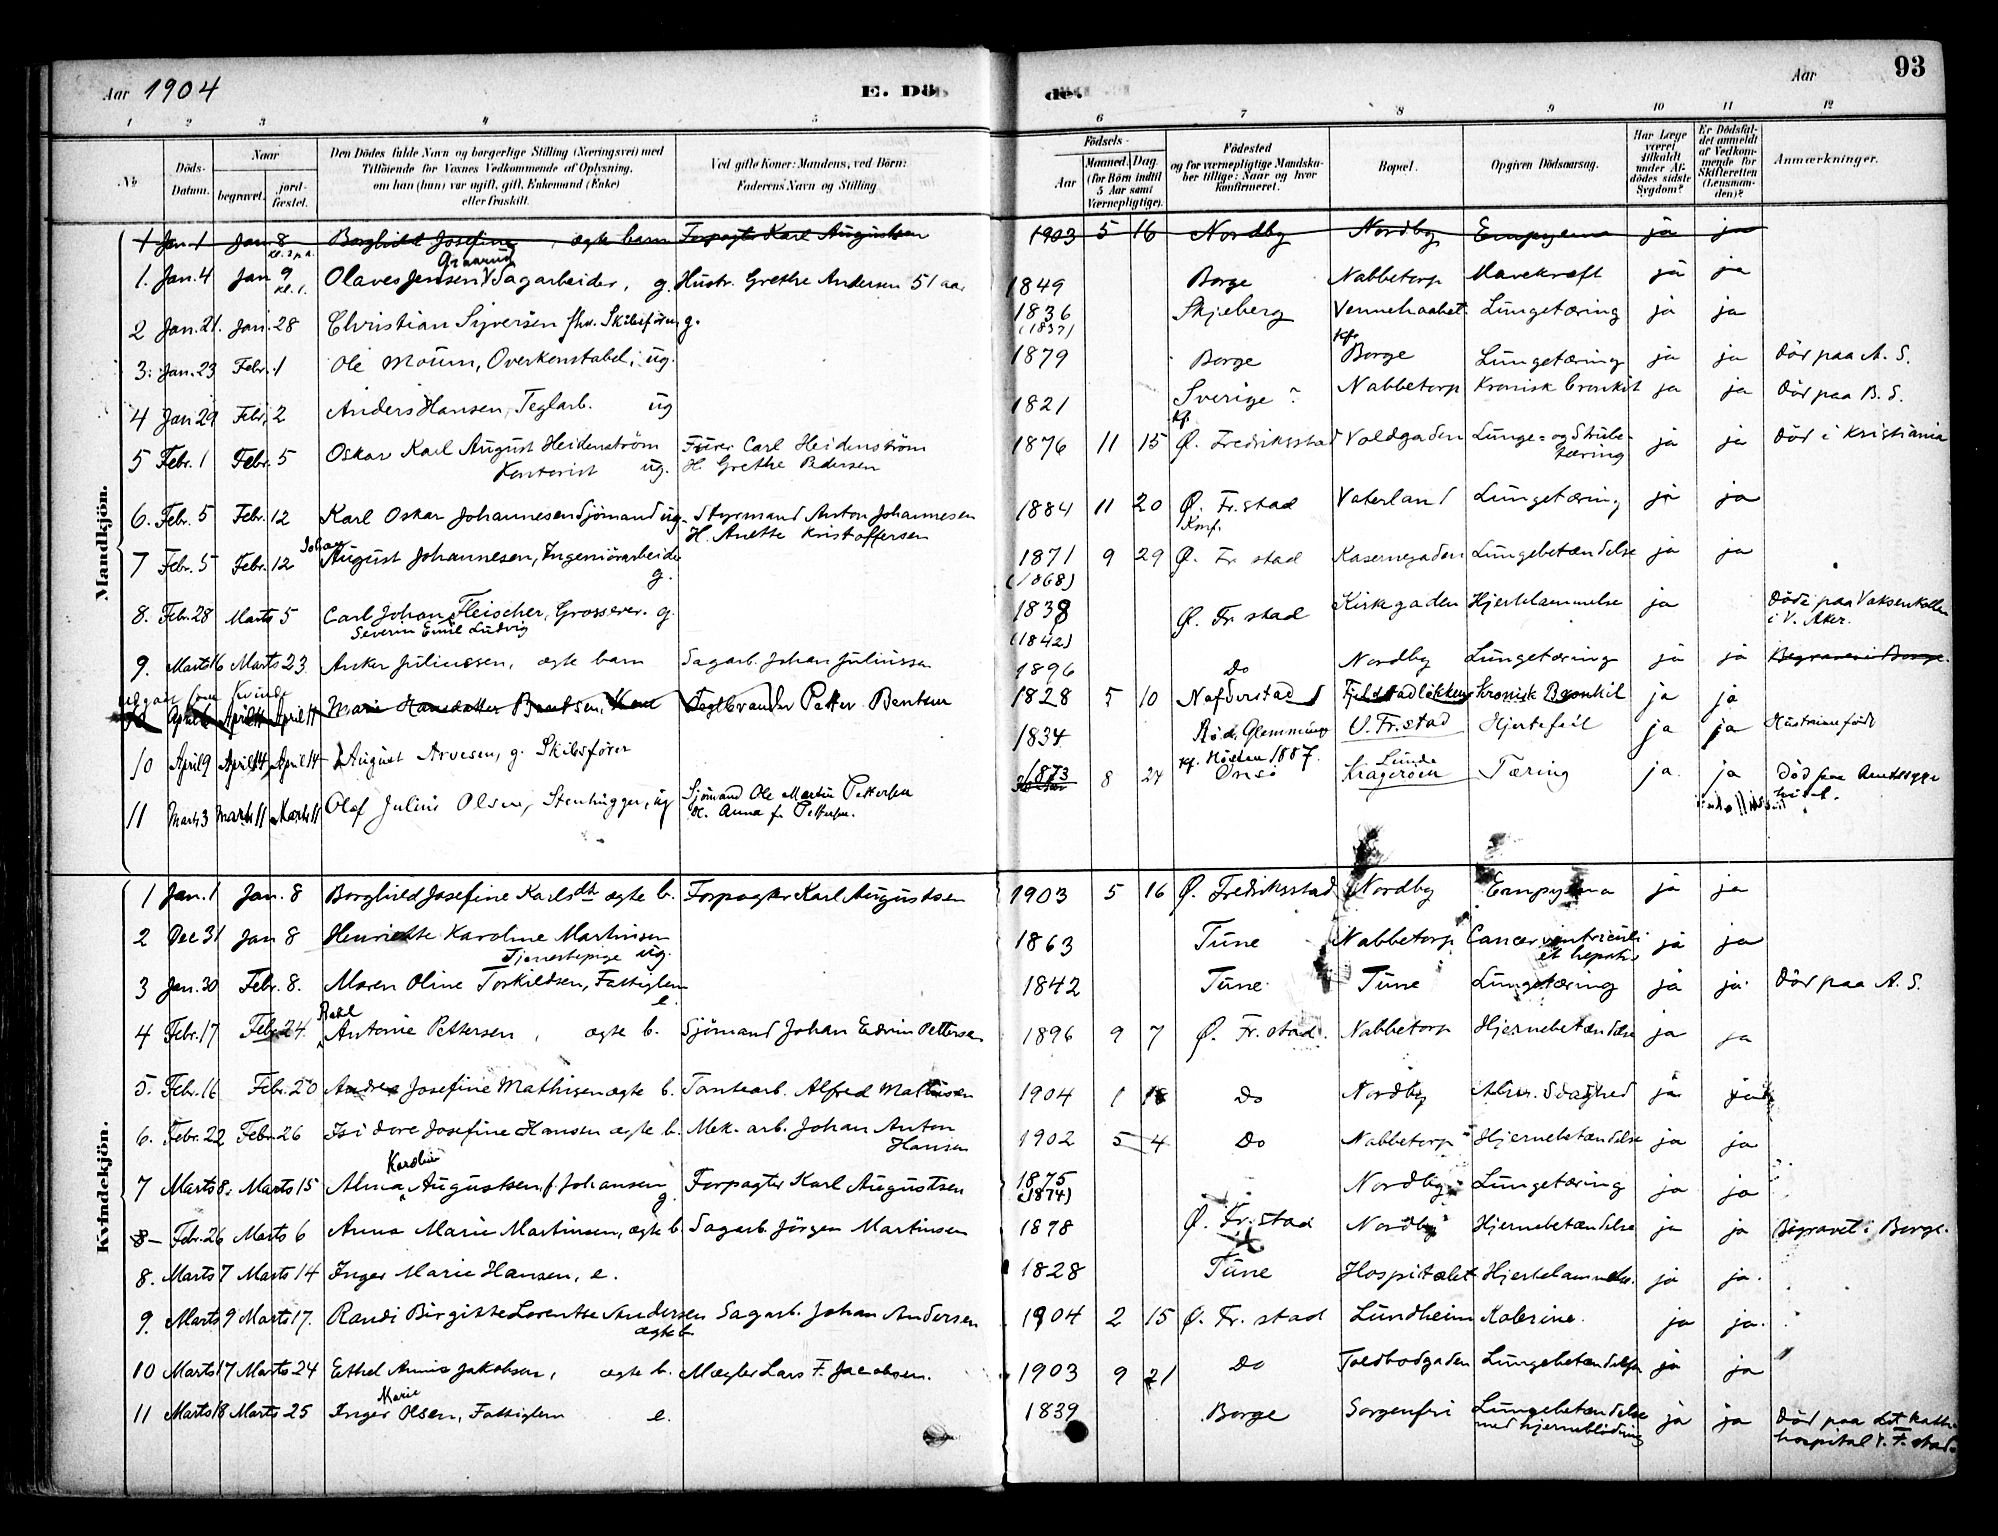 Aar 1904 E. Dö de. Aar 93
1 2 3 4 5 6 7 8 9 10 11 12
No Döds-Datum. Naar begravet. jord-fæstet. Den Dödes fulde Navn og borgerlige Stilling (Næringsvei) med Tillföiende for Voxnes Vedkommende af Oplysning, om han (hun) var ugift, gift, Enkemand (Enke) eller fraskilt. Ved gifte Koner: Mandens, ved Börn: Faderens Navn og Stilling. Födsels- Aar Maaned. Dag. (for Börn indtil 5 Aar samt Værnepligtige). Födested og for værnepligtige Mandskaber tillige: Naar og hvor konfirmeret. Bopæl. Opgiven Dödsaarsag. Har Læge været tilkaldt under Afdödes sidste Sygdom? Er Dödsfaldet anmeldt af Vedkommende for Skifteretten (Lensmanden)? Anmærkninger.
Mandkjön.
1 Jan. 1 Jan. 8 Borghild Josefine, ægte barn Forpagter Karl Augustsen 1903 5 16 Nordby Nordby Empyema ja ja
1. Jan. 4 Jan 9 kl. 1. Olaves Jensen Graarud Sagarbeider, g. Hustr. Grethe Andersen 51 aar 1849 Borge Nabbetorp Mavekræft ja ja
2 Jan. 21. Jan. 28 Christian Syversen fhv. Skibsförer g. 1836 (1837) Skjeberg Vennehaabet Lungetæring ja ja
3. Jan. 23 Febr. 1 Ole Moum, Overkonstabel, ug. 1879 Borge Borge Lungetæring ja ja Död paa A. S.
4 Jan 29 Febr. 2 Anders Hansen, Teglarb. ug 1821 Sverige? Nabbetorp Kronisk bronkit ja ja Död paa B. S.
5 Febr. 1 Febr. 5 Oskar Karl August Heidenström Kontorist ug. Furer Carl Heidenström H. Grethe Pedersen 1876 11 15 Ø. Fredriksstad Voldgaden Lunge- og Strubetæring ja ja Död i Kristiania
6. Febr. 5 Febr. 12 Karl Oskar Johannesen Sjömand ug. Styrmand Anton Johannesen H. Anette Kristoffersen 1884 11 20 Ø. Fr. stad Konf. Vaterland Lungetæring ja ja
7 Febr. 5 Febr. 12 Johan August Johannesen, Ingeniörarbeider g. 1871 (1868) 9 29 Ø. Fr stad Kasernegaden Lungebetændelse ja ja
8. Febr. 28 Marts 5 Carl Johan Fleischer, Grosserer. g. Severin Emil Ludvig 1838 (1842) Ø. Fr stad Kirkegaden Hjertelammelse ja Döde paa Voksenkollen i V. Aker.
9. Marts 16 Marts 23. Anker Juliussen, ægte barn Sagarb. Johan Juliussen 1896 Do Nordby Lungetæring ja ja Begraves i Borge.
April 11 April 11 Marie Hansdatter Berntsen, Kone Teglbrander Petter Berntsen 1828 5 10 Fjeldstadløkken Kronisk Bronkit ja ja
10 April 9 April 14 April 14 August Arvesen, g. Skibsfører 1834 Rød, Glemminge V. Fr. stad Hjertefeil ja ja
11 Marts 3 Marts 11 Marts 11 Olaf Julius Olsen, Stenhugger, ug Sjömand Ole Martin Pettersen H. Anna f. Pettersen. 1873 8 24 Kf. Høsten 1887. Onsö Lunde Kragerøen Tæring ja ja Död paa Amtssygehuset.
Kvindekjön.
1 Jan. 1 Jan. 8 Borghild Josefine Karlsdtr ægte b. Forpagter Karl Augustsen 1903 5 16 Ø. Fredriksstad Nordby Empyema ja ja
2 Dec 31 Jan 8 Henriette Karoline Martinsen Tjenestepige ug. 1863 Tune Nabbetorp Cancer ventriculi et hepatis ja ja
3 Jan. 30 Febr. 8. Maren Oline Torkildsen, Fattiglem e. 1842 Tune Tune Lungetæring ja ja Död paa A. S.
4 Febr. 17 Febr. 24. Antonie Pettersen, ægte b. Sjömand Johan Edvin Pettersen 1896 9 7 Ø. Fr. stad. Nabbetorp Hjernebetændelse ja ja
5. Febr. 16 Febr. 20 Andrea Josefine Mathisen ægte b. Tomtearb. Alfred Mathisen 1904 1 18 Do Nordby Alm. Svaghed ja ja
6. Febr. 22 Febr. 26 Isidore Josefine Hansen ægte b. Mek. arb. Johan Anton Hansen 1902 5 4 Do Nabbetorp Hjernebetændelse ja ja
7 Marts 8. Marts 15 Alma Karoline Augustsen f. Johansen g. Forpagter Karl Augustsen 1875 (1874) Nordby Lungetæring ja ja
8 Febr. 26 Marts 6 Anna Marie Martinsen, ægte b. Sagarb. Jörgen Martinsen 1898 Ø. Fr. stad Nordby Hjernebetændelse ja ja Begravet i Borge.
8. Marts 7 Marts 14 Inger Marie Hansen, e. 1828 Tune Hospitalet Hjertelammelse. ja ja.
9. Marts 9 Marts 17. Randi Birgitte Lorentse Andersen ægte b Sagarb. Johan Andersen 1904 2 15 Ø. Fr. stad Lundheim Kolerine. ja ja.
10 Marts 17 Marts 24 Ethel Annie Jakobsen, ægte b. Mægler Lars F. Jacobsen. 1903 9 21 Do Toldbodgaden Lungebetændelse ja ja
11 Marts 18 Marts 25 Inger Marie Olsen, Fattiglem e. 1839 Borge Sorgenfri Lungebetændelse med hjerneblödning ja ja Död paa det kath. hospital V. F. stad.